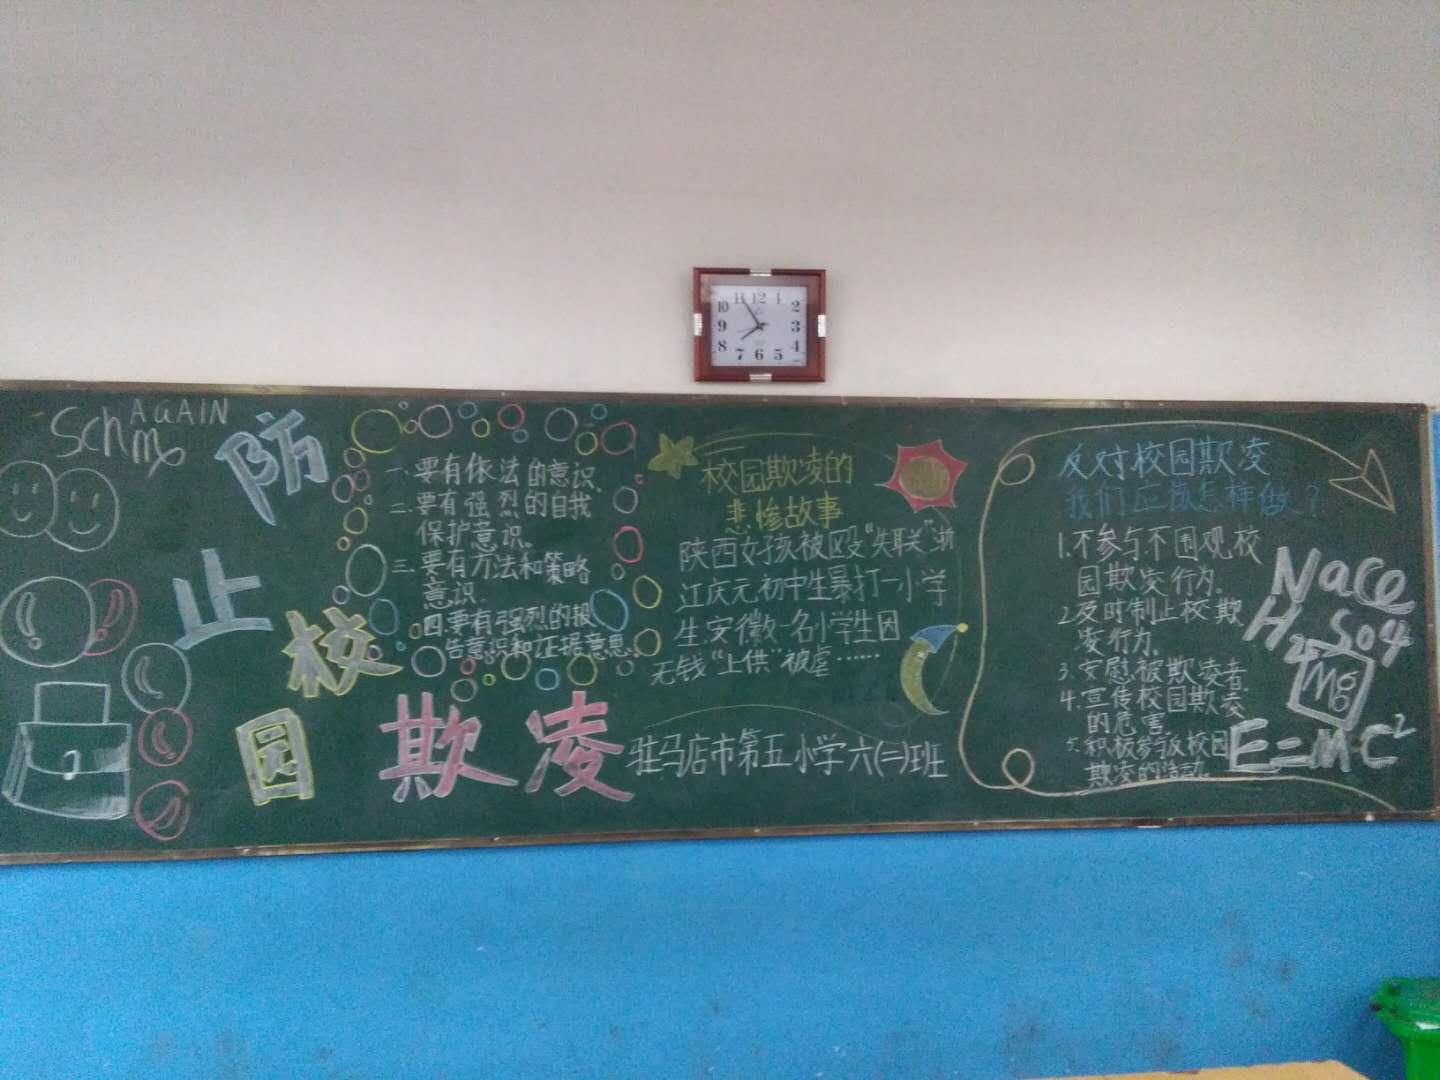 11 12 1
10 2
9 3
8 4
7 6 5
AGAIN
防止校园欺凌
一、要有依法的意识、
二、要有强烈的自我
保护意识。
三、要有方法和策略
意识.
四.要有强烈的报
告意识和证据意思.
校园欺凌的
悲惨故事
陕西女孩被殴“失联”浙
江庆元初中生暴打一小学
生安徽一名小学生因
无钱“上供”被虐……
驻马店市第五小学六(二)班
反对校园欺凌
我们应该怎样做？
1.不参与不围观校
园欺凌行为.
2.及时制止校欺
凌行为.
3.安慰被欺凌者.
4.宣传校园欺凌
的危害
5.积极参与反校园
欺凌的活动.
Nace
H2SO4
Mg
E=MC²